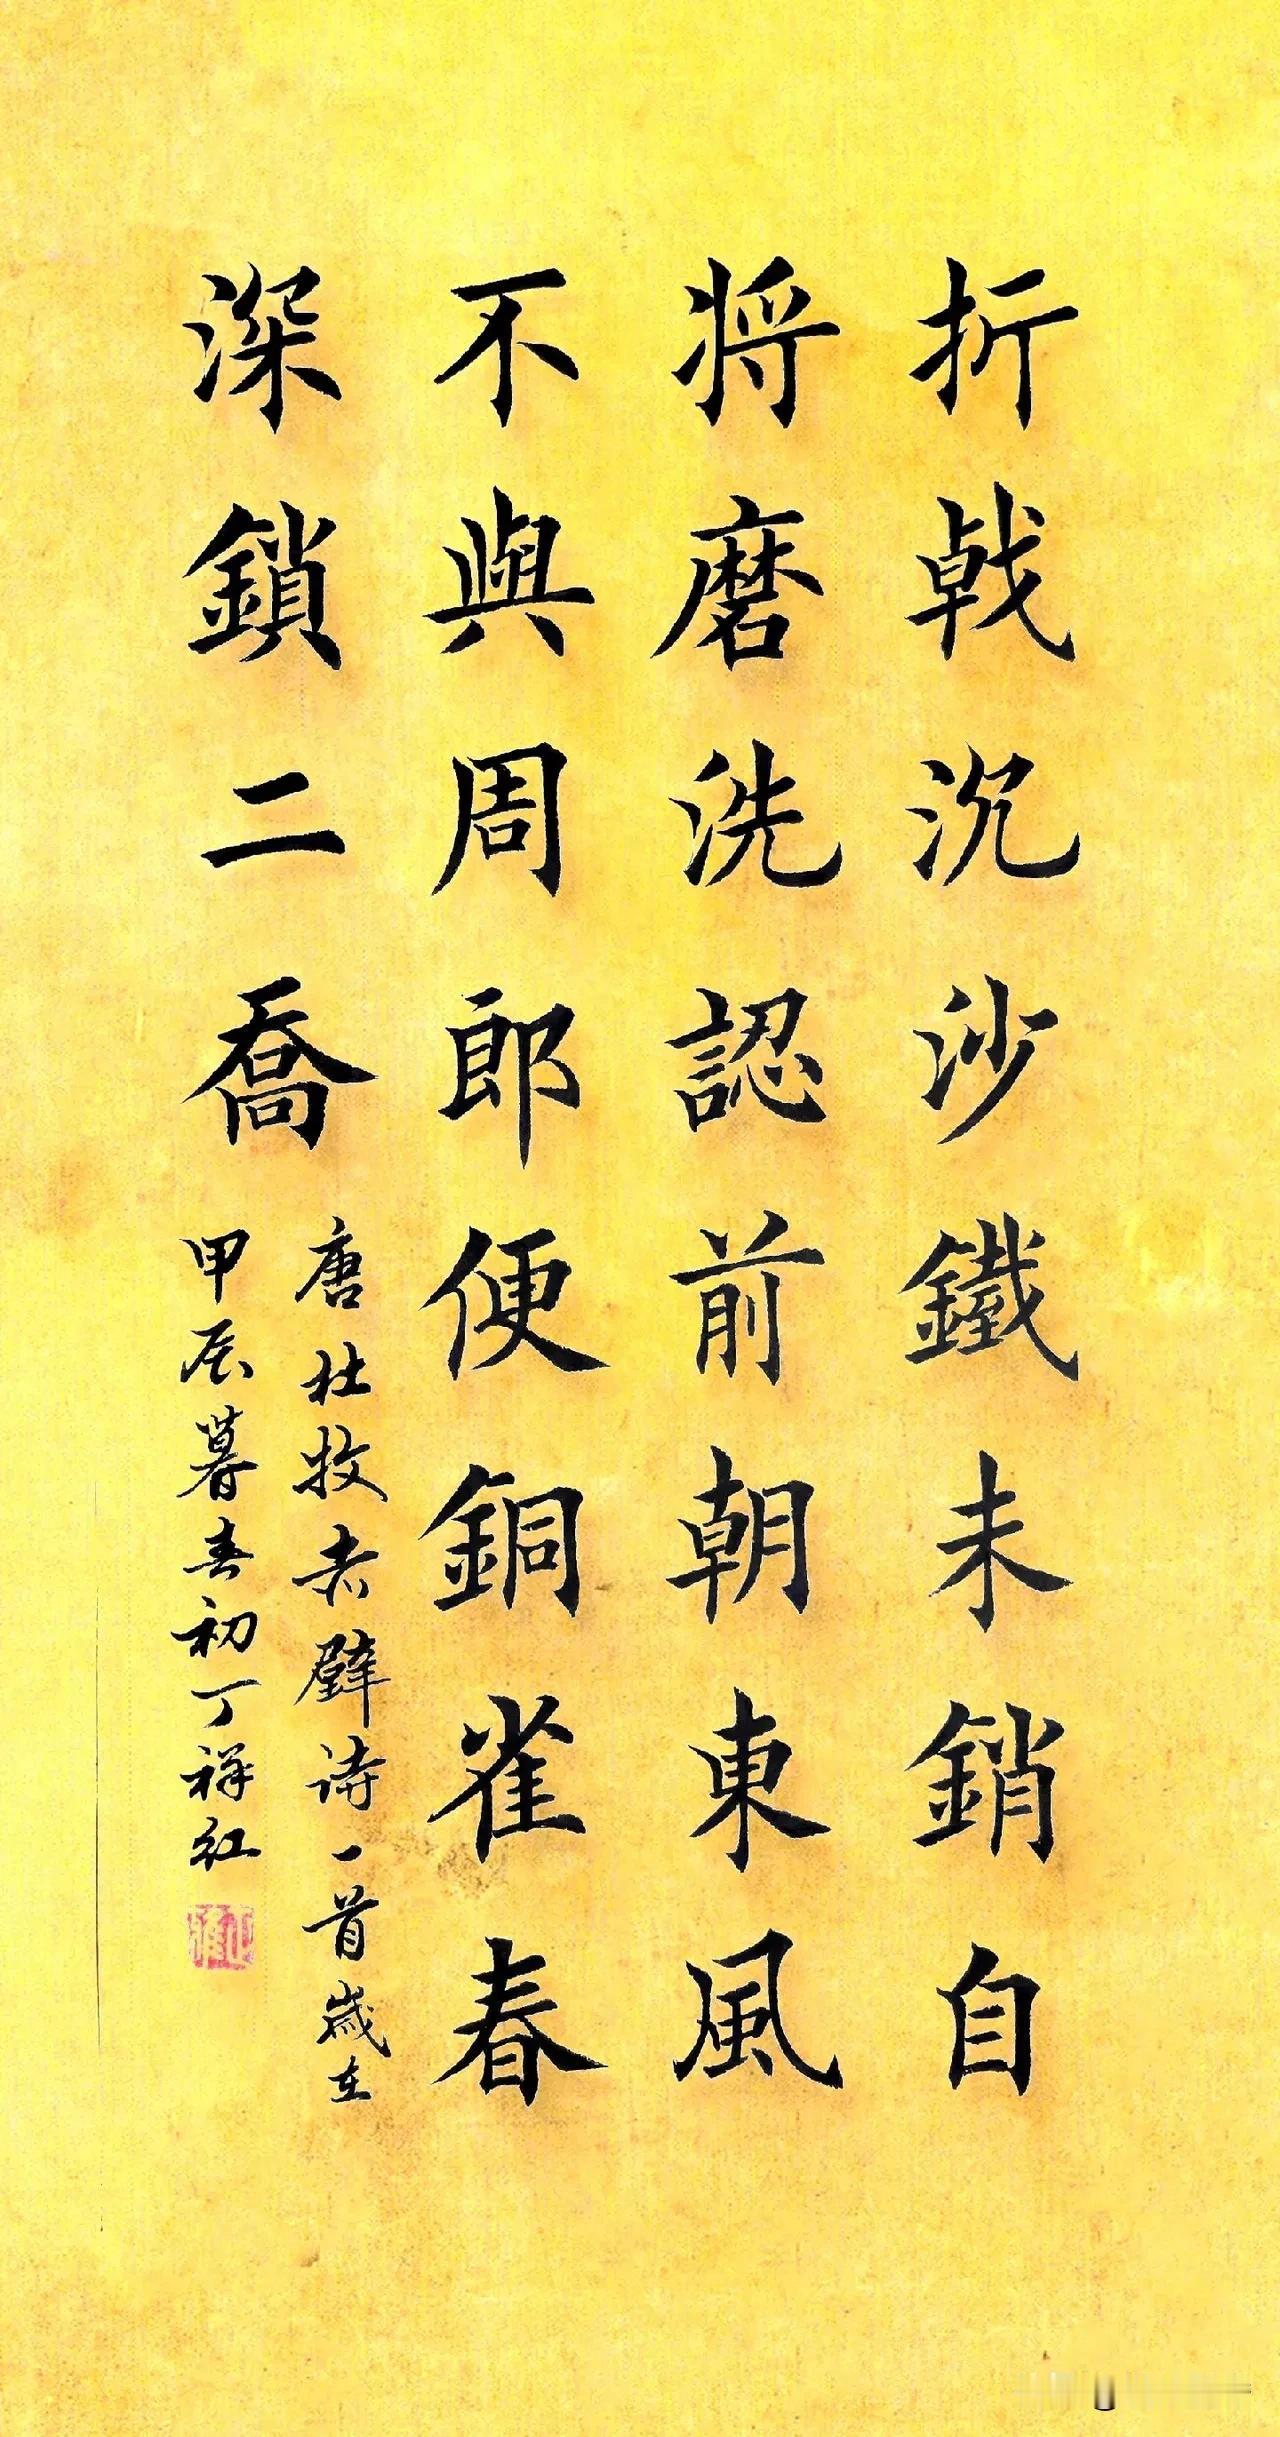 折戟沉沙鐵未銷自
将磨洗認前朝東風
不與周郎便銅雀春
深鎖二喬
唐杜牧赤壁诗一首歲在
甲辰暮春初丁祥红